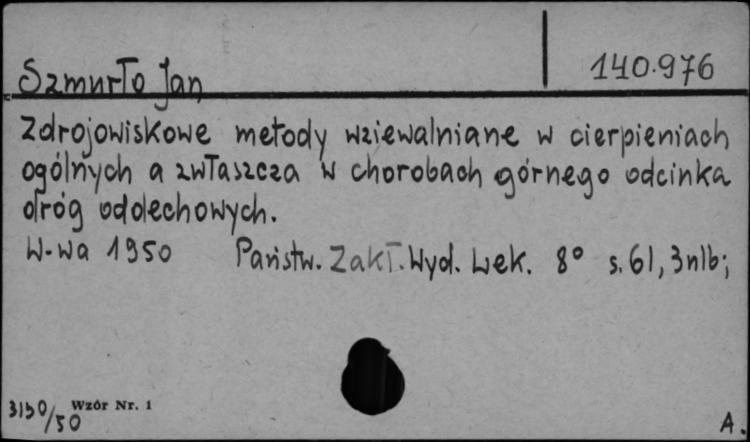 Szmurło Jan
140.976
Zdrojowiskowe metody wziewalniane w cierpieniach
ogólnych a zwłaszcza w chorobach górnego odcinka
dróg oddechowych.
W-wa 1950 Państw. Zakł. Wyd. Lek. 8° s. 61, 3 nlb;
3130/50
Wzór Nr. 1
A.